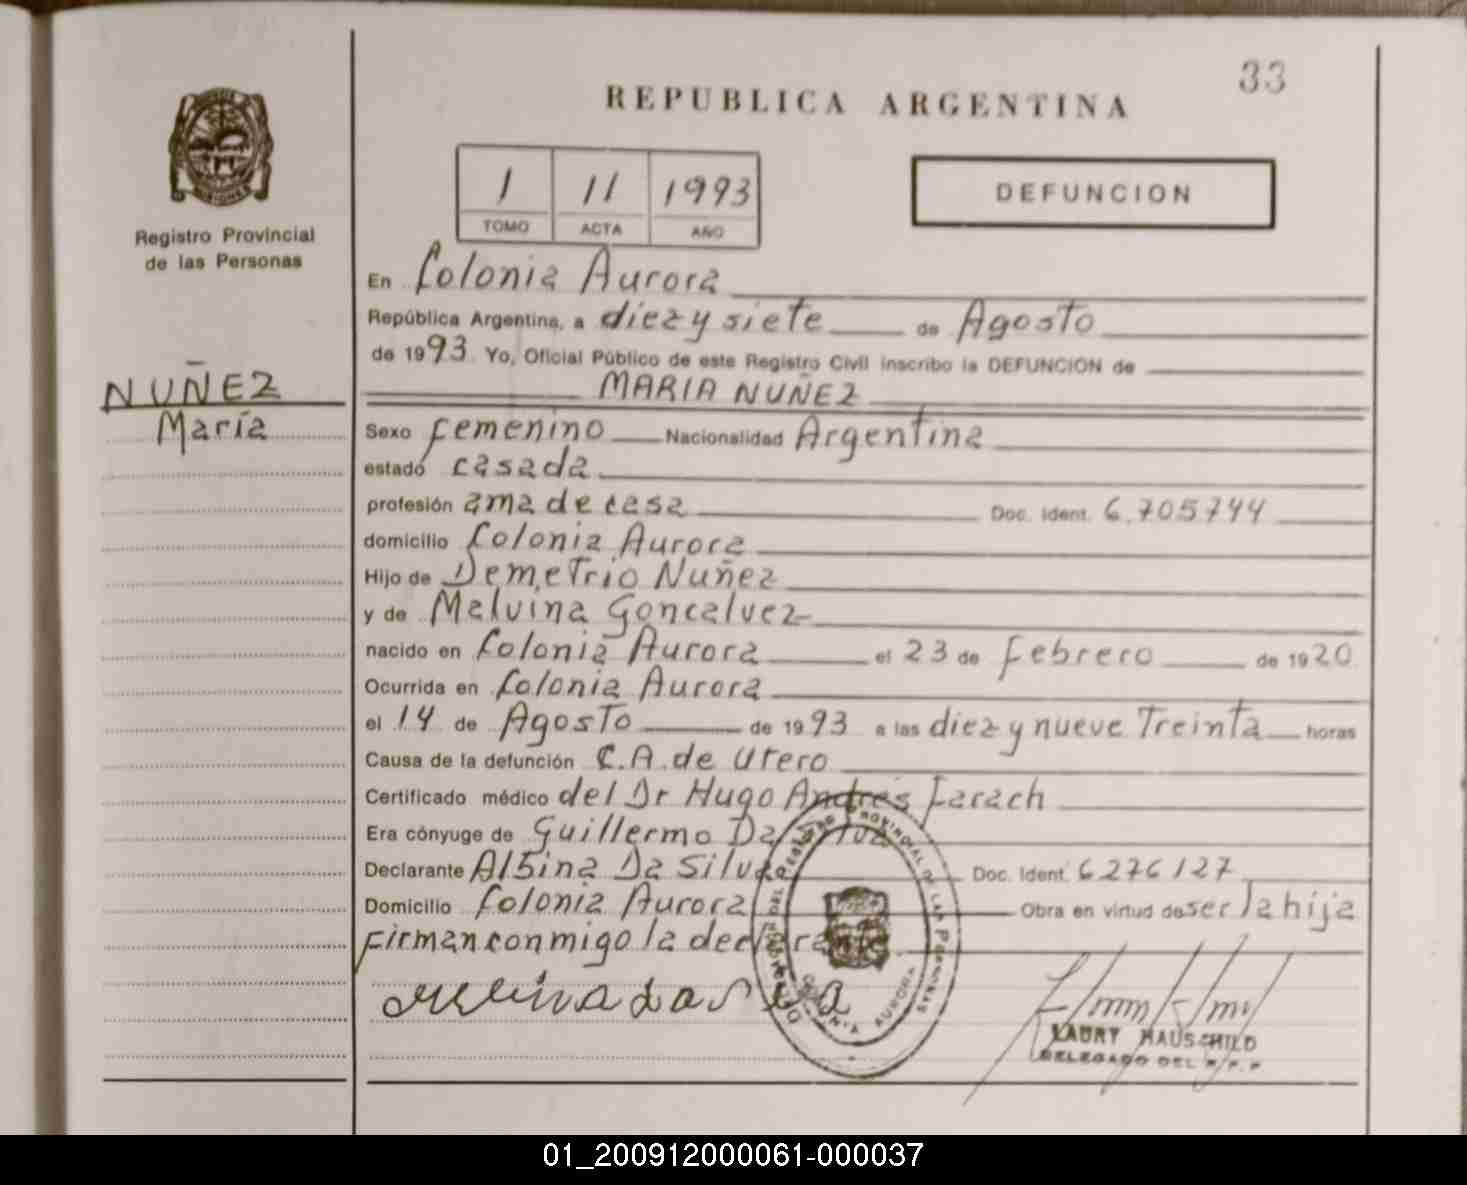 33
REPUBLICA ARGENTINA
1 11 1993
TOMO ACTA AÑO
DEFUNCION
Registro Provincial
de las Personas
NUÑEZ
María
En Colonia Aurora
República Argentina, a diez y siete de Agosto
de 1993 Yo, Oficial Público de este Registro Civil inscribo la DEFUNCION de
MARIA NUÑEZ
Sexo femenino Nacionalidad Argentina
estado casada
profesión ama de casa Doc. Ident. 6.705744
domicilio Colonia Aurora
Hijo de Demetrio Nuñez
y de Malvina Goncalvez
nacido en Colonia Aurora el 23 de Febrero de 1920
Ocurrida en Colonia Aurora
el 14 de Agosto de 1993 a las diez y nueve Treinta horas
Causa de la defunción C.A. de Utero
Certificado médico del Dr Hugo Andrés Farach
Era cónyuge de Guillermo Da Silva
Declarante Albina Da Silva Doc. Ident. 6276127
Domicilio Colonia Aurora Obra en virtud de ser la hija
Firman conmigo la declarante
DEL REGISTRO PROVINCIAL DE LAS PERSONAS
COLONIA AURORA
LAURY HAUSCHILD
DELEGADO DEL R.P.P
01_200912000061-000037